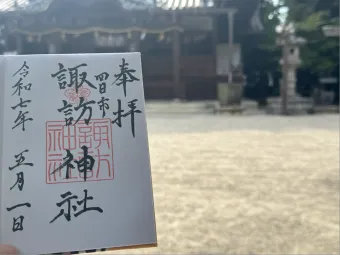 奉拝
四日市
諏訪神社
令和七年 五月一日